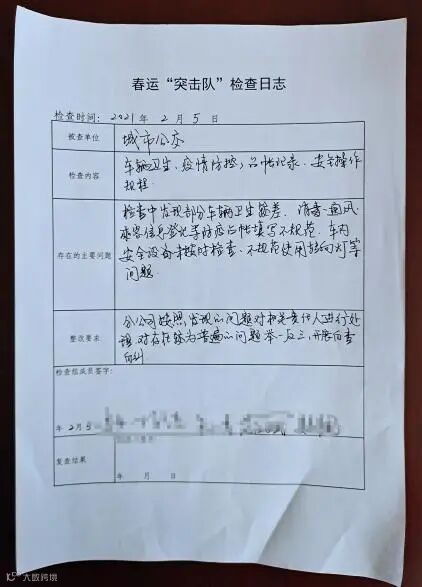 春运“突击队”检查日志
检查时间：2021年 2月 5日
被查单位 城市公交
检查内容 车辆卫生、疫情防控、台帐记录、安全操作
规程
检查中发现部分车辆卫生较差、消毒、通风
乘客信息登记等防疫台帐填写不规范、车内
存在的主要问题 安全设施未按时检查、不规范使用转向灯等
问题
分公司按照发现的问题对相关责任人进行处
整改要求 理、对存在较为普遍的问题举一反三，开展自查
自纠
检查组成员签字：
年 2月5
复查结果
年 月 日
大数跨境